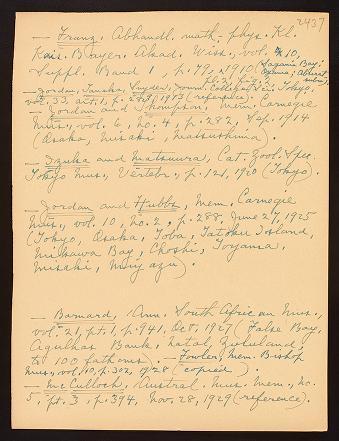 2437
— Franz, Abhandl. math. phys. Kl.
Kais. Bayer. Akad. Wiss., vol. 10,
Suppl. Band 1, p. 79, 1910 (Sagami Bay;
— Jordan, Tanaka, Snyder, Journ. Coll. Sci. Tokyo,
vol. 33, art. 1, 1913 (reference).
— Jordan and Thompson, Mem. Carnegie
Mus., vol. 6, no. 4, p. 282, Sep. 1914
(Osaka, Misaki, Matsushima).
— Izuka and Matsuura, Cat. Zool. Spec.
Tokyo Mus., Vertebr., p. 121, 1920 (Tokyo).
— Jordan and Hubbs, Mem. Carnegie
Mus., vol. 10, no. 2, p. 288, June 27, 1925
(Tokyo, Osaka, Toba, Tatoku Island,
Misawa Bay, Choshi, Toyama,
Misaki, Miyazu).
— Barnard, Ann. South African Mus.,
vol. 21, pt. 1, p. 941, Oct. 1927 (False Bay,
Agulhas Bank, Natal, Zululand,
to 100 fathoms). — Fowler, Mem. Bishop
Mus., vol. 10, p. 302, 1928 (copied).
— McCulloch, Austral. Mus. Mem., no.
5, pt. 3, p. 394, Nov. 28, 1929 (reference).